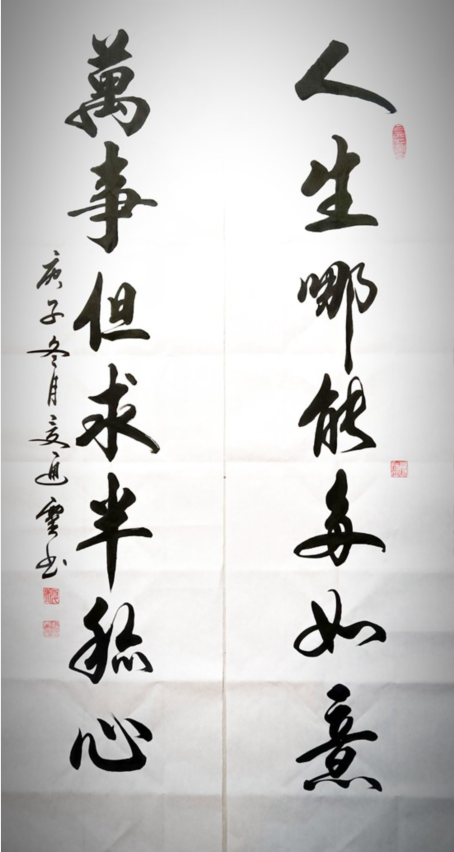 人生哪能多如意
萬事但求半称心
庚子冬月雲书